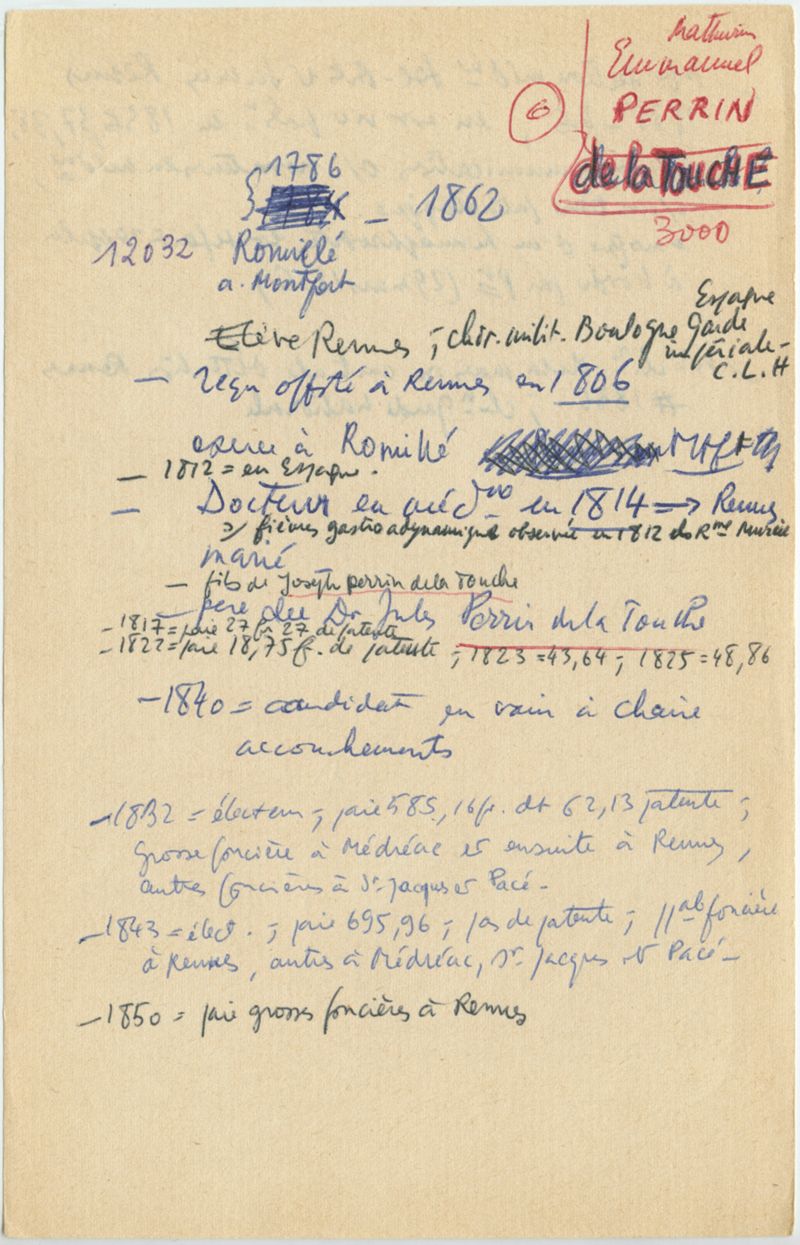 Mathurin
Emmanuel
6 PERRIN
de la TOUCHE
3000
1786
– 1862
12032 Romillé
a. Montfort
Elève Rennes ; chir. milit. Boulogne Espagne Garde impériale –
C.L.H
– reçu offsté à Rennes en 1806
exerce à Romillé
– 1812 = en Espagne.
– Docteur en méd en 1814 → Rennes
fièvres gastro adynamiques observée en 1812 ds Rme Murcie
marié
– fils de Joseph perrin de la Touche
– père du Dr Jules Perrin de la Touche
– 1817 = paie 27 fr 27 de patente
– 1822 = paie 18,75 f. de patente ; 1823 = 43,64 ; 1825 = 48,86
– 1840 = candidat en vain à chaire
accouchements
– 1832 = électeur ; paie 585,16 fr. dt 62,13 patente ;
grosse foncière à Médréac et ensuite à Rennes,
autres foncières à St Jacques et Pacé –
– 1843 = élect. ; paie 695,96 ; pas de patente ; ppale foncière
à Rennes, autres à Médréac, St Jacques et Pacé –
– 1850 = paie grosses foncières à Rennes